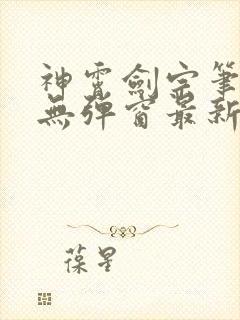 神霄劍宗筆
無彈窗最新
葆星